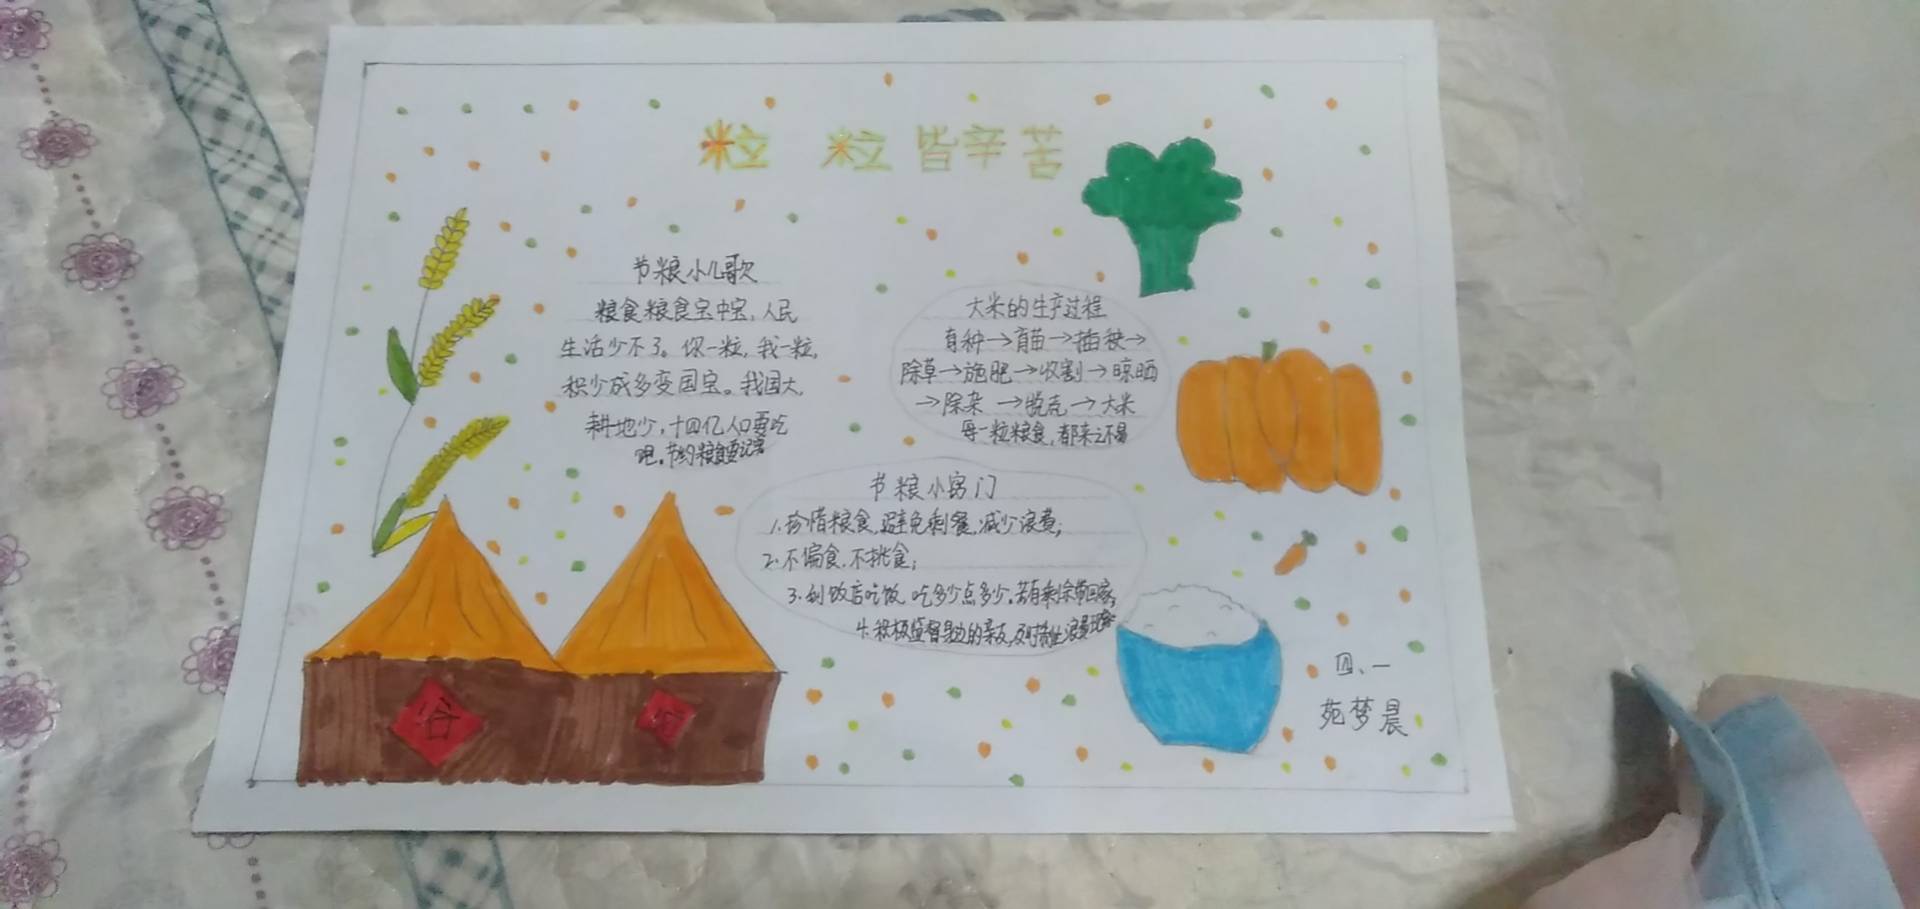 粒粒皆辛苦
节粮小儿歌
粮食粮食宝中宝,人民
生活少不了。你一粒,我一粒,
积少成多变国宝。我国大,
耕地少,十四亿人口要吃
吧。节约粮食要记牢
大米的生产过程
育种→育苗→插秧→
除草→施肥→收割→晾晒
→除杂→脱壳→大米
每一粒粮食,都来之不易
节粮小窍门
1.珍惜粮食,避免剩餐,减少浪费;
2.不偏食,不挑食;
3.到饭店吃饭 吃多少点多少。若有剩余带回家;
4.积极监督身边的亲友,及时制止浪费
谷
四、一
苑梦晨